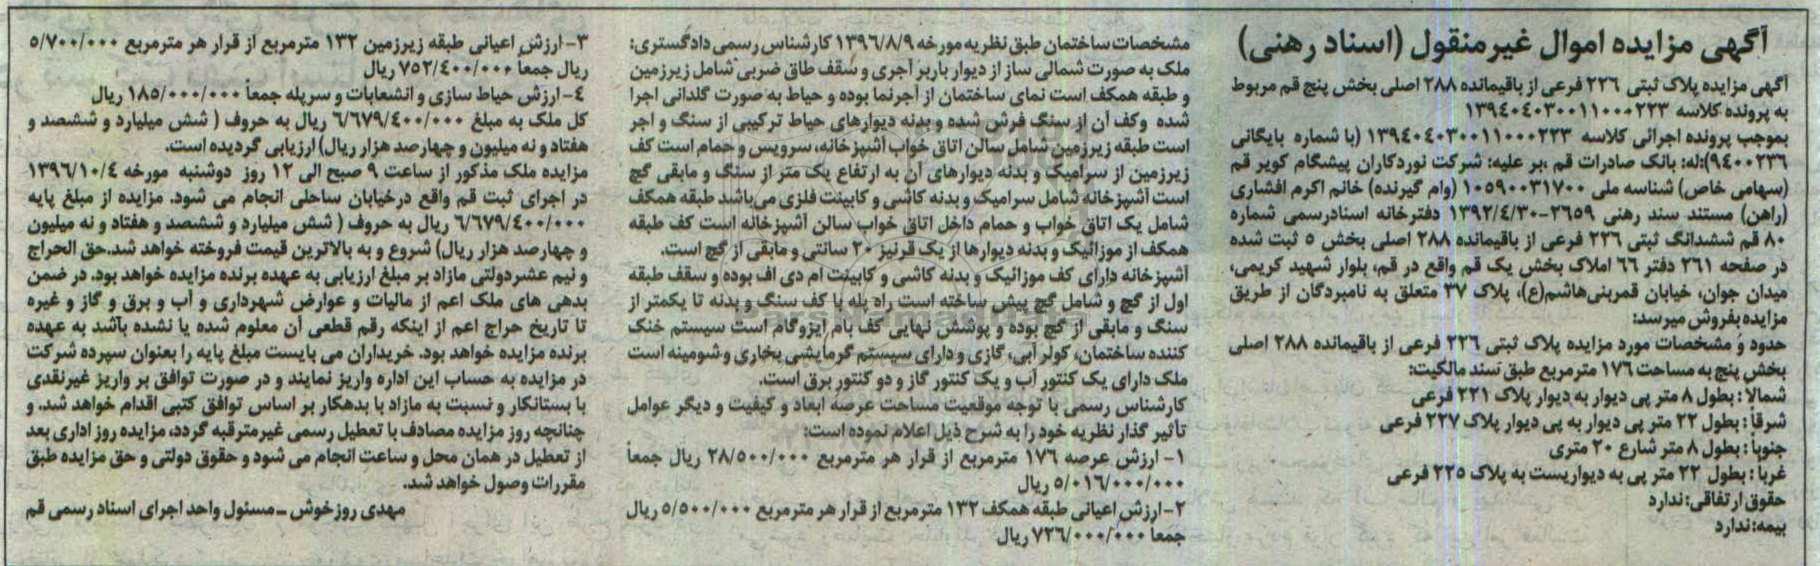 آگهی مزایده اموال غیرمنقول (اسناد رهنی)
آگهی مزایده پلاک ثبتی ۲۲۶ فرعی از باقیمانده ۲۸۸ اصلی بخش پنج قم مربوط
به پرونده کلاسه ۱۳۹۴۰۴۰۳۰۰۱۱۰۰۰۲۲۳
بموجب پرونده اجرائی کلاسه ۱۳۹۴۰۴۰۳۰۰۱۱۰۰۰۲۲۳ (با شماره بایگانی
۹۴۰۰۲۳۶)له: بانک صادرات قم ،بر علیه: شرکت نوردکاران پیشگام کویر قم
(سهامی خاص) شناسه ملی ۱۰۵۹۰۰۳۱۷۰۰ (وام گیرنده) خانم اکرم افشاری
(راهن) مستند سند رهنی ۲۶۵۹-۱۳۹۲/۴/۳۰ دفترخانه اسنادرسمی شماره
۸۰ قم ششدانگ ثبتی ۲۲۶ فرعی از باقیمانده ۲۸۸ اصلی بخش ۵ ثبت شده
در صفحه ۲۶۱ دفتر ۶۶ املاک بخش یک قم واقع در قم، بلوار شهید کریمی،
میدان جوان، خیابان قمربنی‌هاشم(ع)، پلاک ۳۷ متعلق به نامبردگان از طریق
مزایده بفروش میرسد:
حدود و مشخصات مورد مزایده پلاک ثبتی ۲۲۶ فرعی از باقیمانده ۲۸۸ اصلی
بخش پنج به مساحت ۱۷۶ مترمربع طبق سند مالکیت:
شمالا : بطول ۸ متر پی دیوار به دیوار پلاک ۲۲۱ فرعی
شرقاً : بطول ۲۲ متر پی دیوار به پی دیوار پلاک ۲۲۷ فرعی
جنوباً : بطول ۸ متر شارع ۲۰ متری
غرباً : بطول ۲۲ متر پی به دیواریست به پلاک ۲۲۵ فرعی
حقوق ارتفاقی: ندارد
بیمه: ندارد
مشخصات ساختمان طبق نظریه مورخه ۱۳۹۶/۸/۹ کارشناس رسمی دادگستری:
ملک به صورت شمالی ساز از دیوار باربر آجری و سقف طاق ضربی شامل زیرزمین
و طبقه همکف است نمای ساختمان از آجرنما بوده و حیاط به صورت گلدانی اجرا
شده وکف آن از سنگ فرش شده و بدنه دیوارهای حیاط ترکیبی از سنگ و اجر
است طبقه زیرزمین شامل سالن اتاق خواب آشپزخانه، سرویس و حمام است کف
زیرزمین از سرامیک و بدنه دیوارهای آن به ارتفاع یک متر از سنگ و مابقی گچ
است آشپزخانه شامل سرامیک و بدنه کاشی و کابینت فلزی می‌باشد طبقه همکف
شامل یک اتاق خواب و حمام داخل اتاق خواب سالن آشپزخانه است کف طبقه
همکف از موزائیک و بدنه دیوارها از یک قرنیز ۲۰ سانتی و مابقی از گچ است.
آشپزخانه دارای کف موزائیک و بدنه کاشی و کابینت ام دی اف بوده و سقف طبقه
اول از گچ و شامل گچ پیش ساخته است راه پله با کف سنگ و بدنه تا یکمتر از
سنگ و مابقی از گچ بوده و پوشش نهایی کف بام ایزوگام است سیستم خنک
کننده ساختمان، کولر آبی، گازی و دارای سیستم گرمایشی بخاری و شومینه است
ملک دارای یک کنتور آب و یک کنتور گاز و دو کنتور برق است.
کارشناس رسمی با توجه موقعیت مساحت عرصه ابعاد و کیفیت و دیگر عوامل
تأثیر گذار نظریه خود را به شرح ذیل اعلام نموده است:
۱- ارزش عرصه ۱۷۶ مترمربع از قرار هر مترمربع ۲۸/۵۰۰/۰۰۰ ریال جمعاً
۵/۰۱۶/۰۰۰/۰۰۰ ریال
۲- ارزش اعیانی طبقه همکف ۱۳۲ مترمربع از قرار هر مترمربع ۵/۵۰۰/۰۰۰ ریال
جمعا ۷۲۶/۰۰۰/۰۰۰ ریال
۳- ارزش اعیانی طبقه زیرزمین ۱۳۲ مترمربع از قرار هر مترمربع ۵/۷۰۰/۰۰۰
ریال جمعاً ۷۵۲/۴۰۰/۰۰۰ ریال
۴- ارزش حیاط سازی و انشعابات و سرپله جمعاً ۱۸۵/۰۰۰/۰۰۰ ریال
کل ملک به مبلغ ۶/۶۷۹/۴۰۰/۰۰۰ ریال به حروف ( شش میلیارد و ششصد و
هفتاد و نه میلیون و چهارصد هزار ریال) ارزیابی گردیده است.
مزایده ملک مذکور از ساعت ۹ صبح الی ۱۲ روز دوشنبه مورخه ۱۳۹۶/۱۰/۴
در اجرای ثبت قم واقع درخیابان ساحلی انجام می شود. مزایده از مبلغ پایه
۶/۶۷۹/۴۰۰/۰۰۰ ریال به حروف ( شش میلیارد و ششصد و هفتاد و نه میلیون
و چهارصد هزار ریال) شروع و به بالاترین قیمت فروخته خواهد شد.حق الحراج
و نیم عشردولتی مازاد بر مبلغ ارزیابی به عهده برنده مزایده خواهد بود. در ضمن
بدهی های ملک اعم از مالیات و عوارض شهرداری و آب و برق و گاز و غیره
تا تاریخ حراج اعم از اینکه رقم قطعی آن معلوم شده یا نشده باشد به عهده
برنده مزایده خواهد بود. خریداران می بایست مبلغ پایه را بعنوان سپرده شرکت
در مزایده به حساب این اداره واریز نمایند و در صورت توافق بر واریز غیرنقدی
با بستانکار و نسبت به مازاد با بدهکار بر اساس توافق کتبی اقدام خواهد شد. و
چنانچه روز مزایده مصادف با تعطیل رسمی غیرمترقبه گردد، مزایده روز اداری بعد
از تعطیل در همان محل و ساعت انجام می شود و حقوق دولتی و حق مزایده طبق
مقررات وصول خواهد شد.
مهدی روزخوش ـ مسئول واحد اجرای اسناد رسمی قم